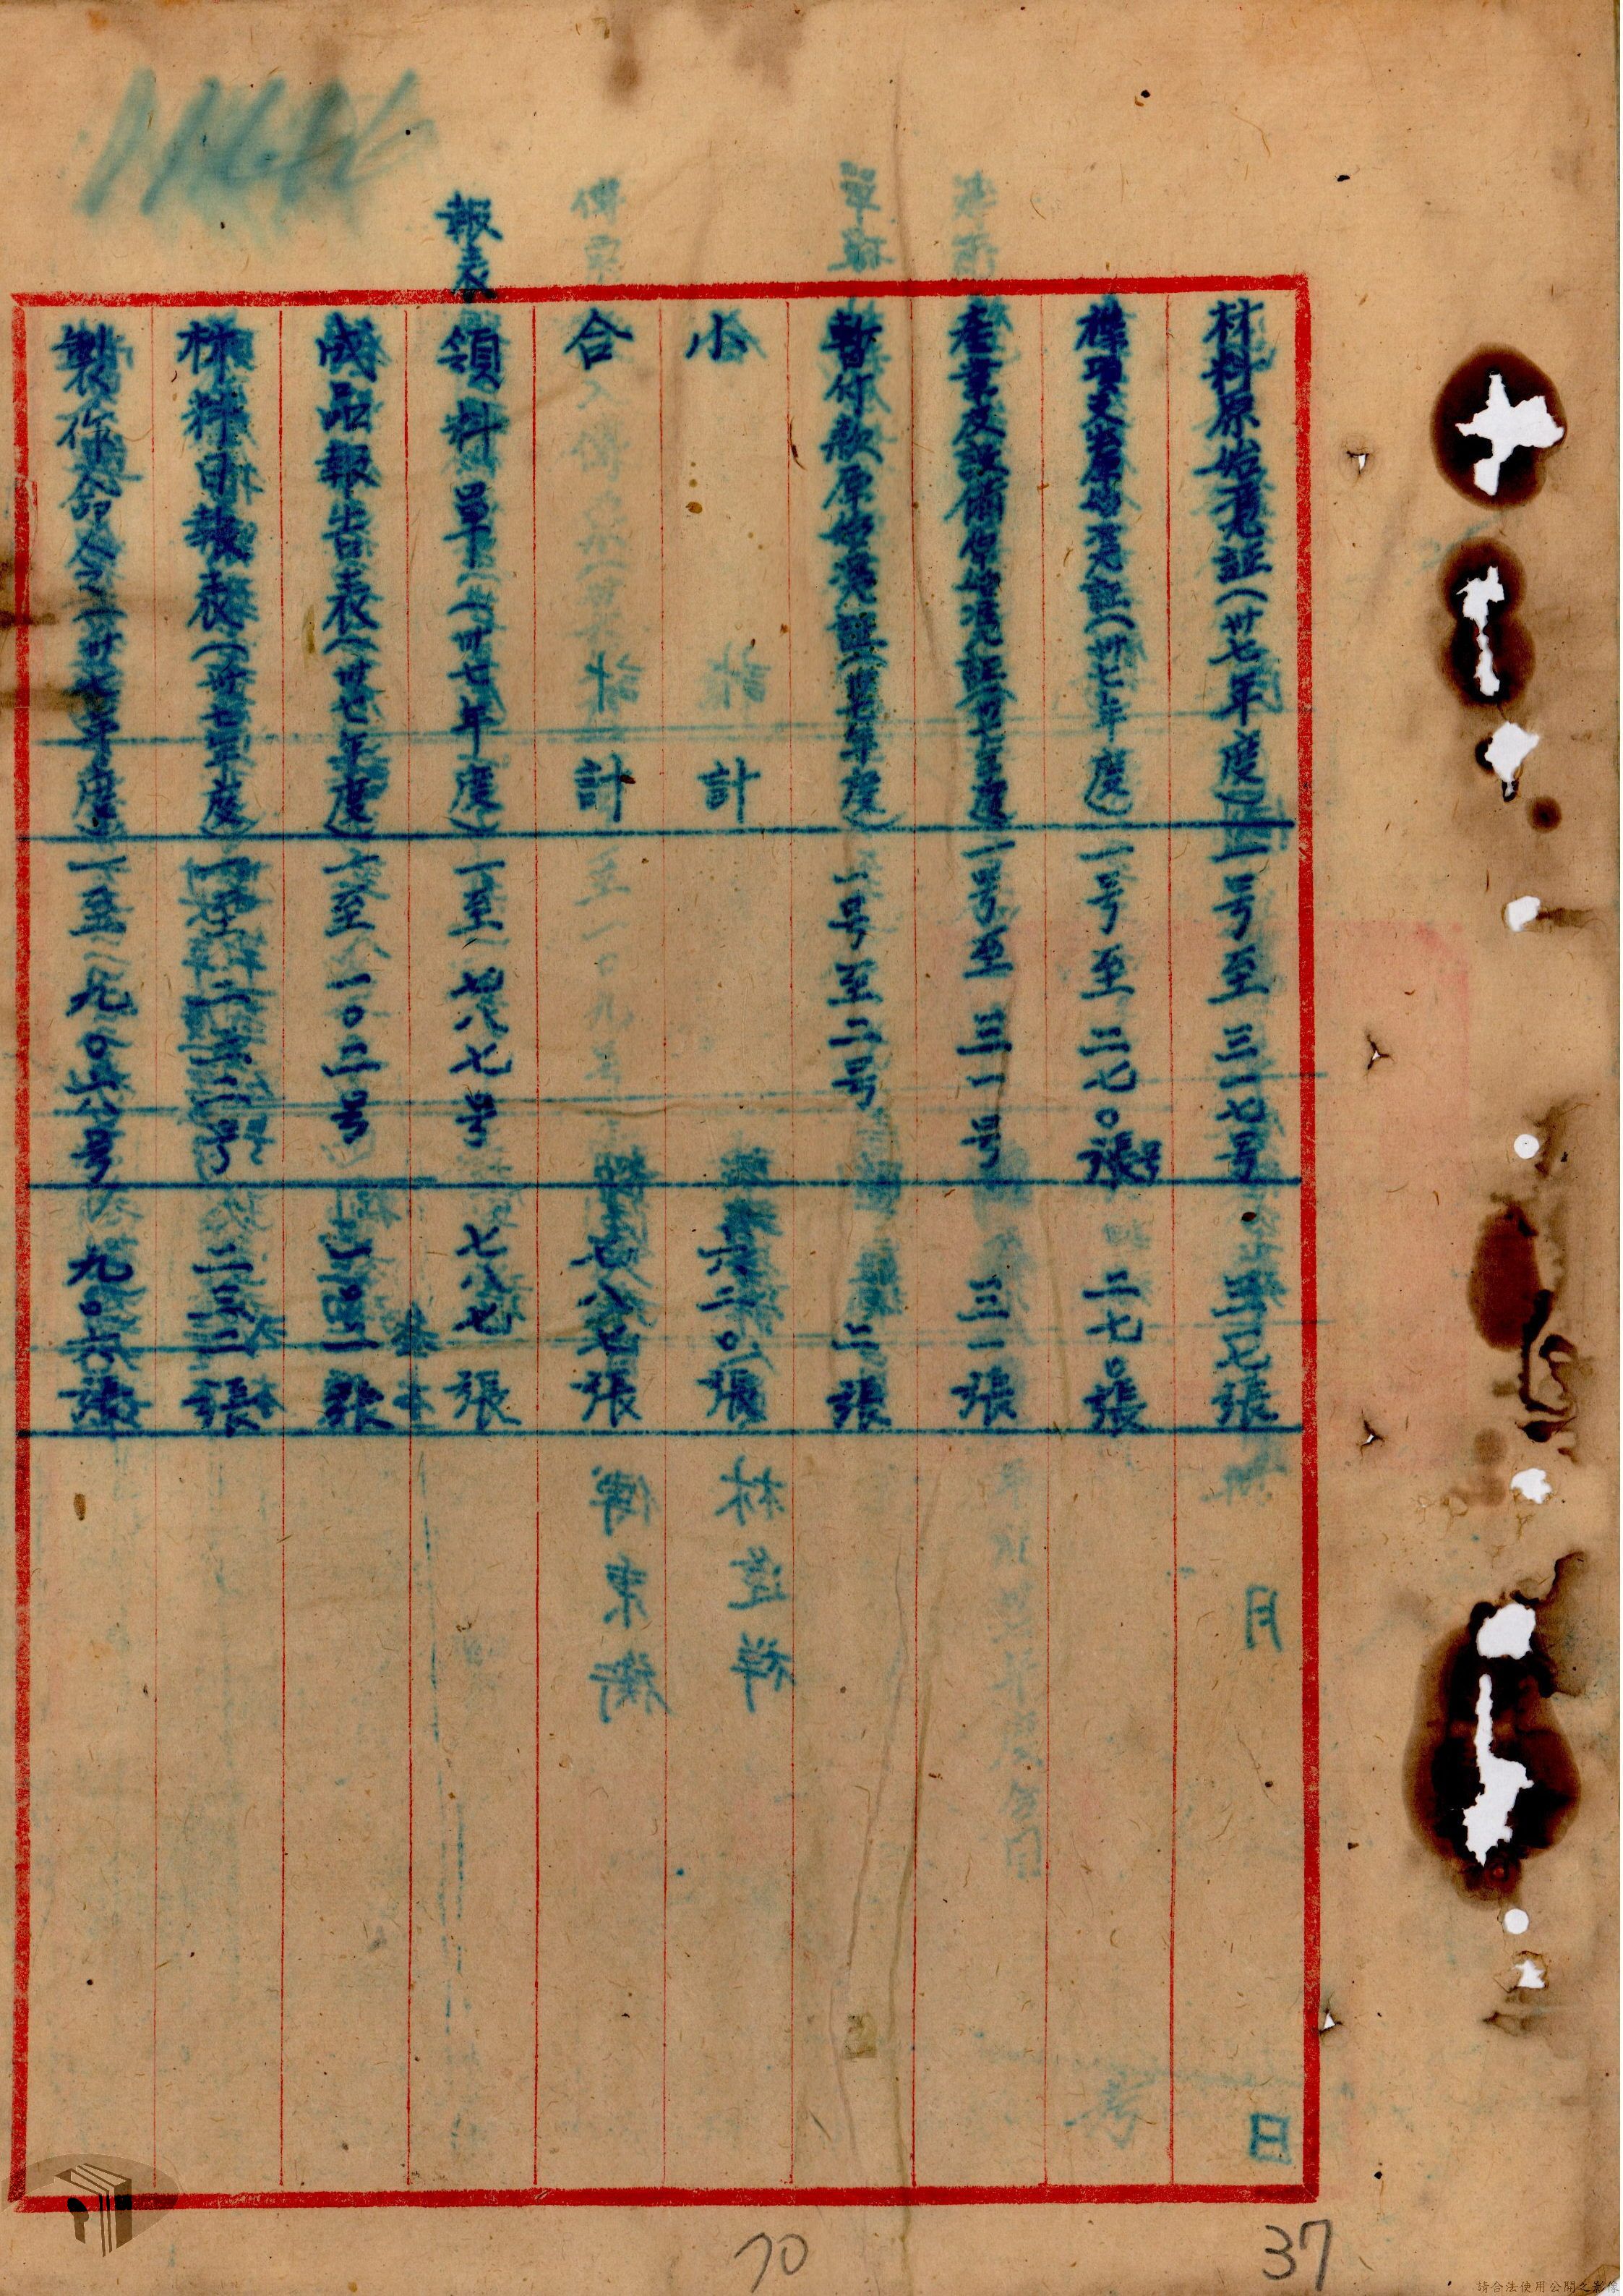 材料原始憑証（卅七年度） 一号至三一七号 三一七張
雜項支出原始憑証（卅七年度） 一号至二七〇張号 二七〇張
產業及設備原始憑証（卅七年度） 一号至三一号 三一張
暫付款原始憑證（卅七年度） 一号至二号 二張
小計 六二〇張
合計 張
報表
領料單（卅七年度） 一至七八七号 七八七張
成品報告表（卅七年度） 一至一〇二号 一〇二張
材料日報表（卅七年度） 一至二三二号 二三二張
製作命令（卅七年度） 一至九〇六号 九〇六張
70
37
請合法使用公開之影像